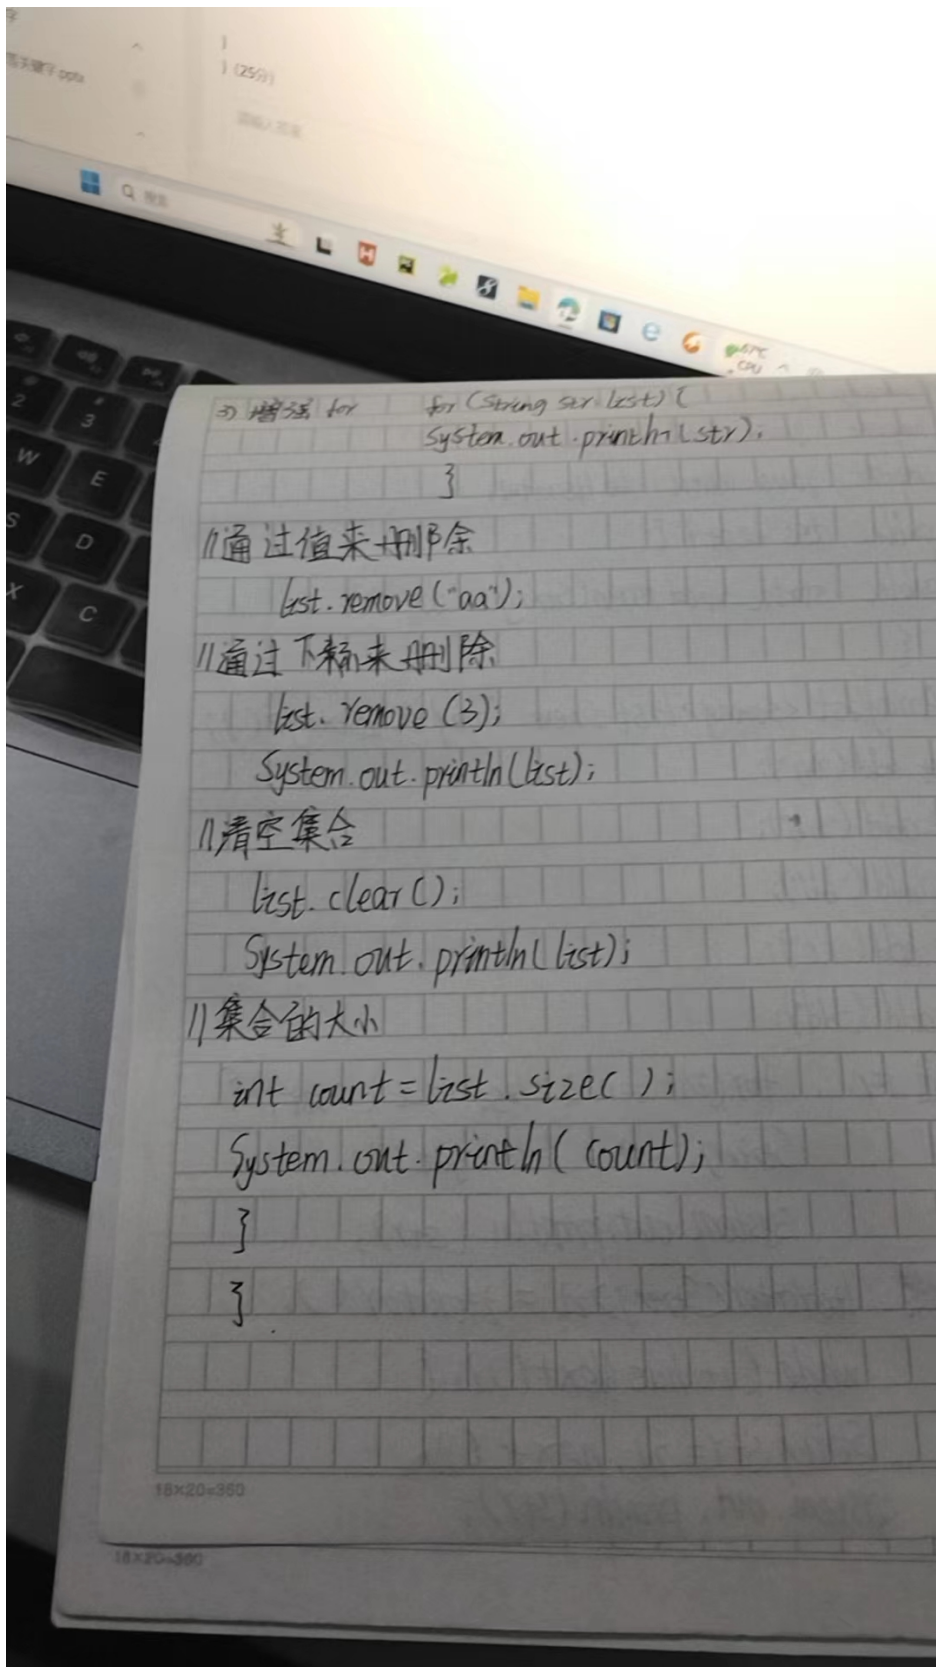 }
} (25分)
请输入答案
搜索
3) 增强 for for (String str list) {
System.out.println(str);
}
//通过值来删除
list.remove("aa");
//通过下标来删除
list.remove(3);
System.out.println(list);
//清空集合
list.clear();
System.out.println(list);
//集合的大小
int count=list.size();
System.out.println(count);
}
}
18×20=360
18×20=360
2
3
W
E
S
D
X
C